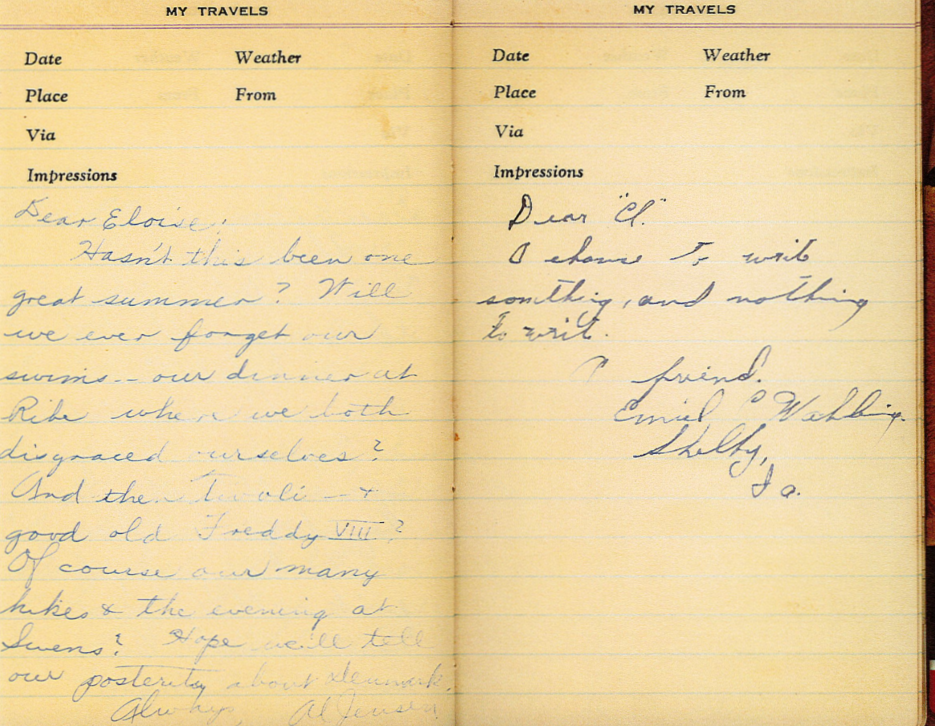 MY TRAVELS
Date Weather
Place From
Via
Impressions
Dear Eloise:
Hasn't this been one
great summer? Will
we ever forget our
swims -- our dinner at
Ribe where we both
disgraced ourselves?
And then Tivoli - &
good old Freddy VIII?
Of course our many
hikes & the evening at
Svens? Hope we'll tell
our posterity about Denmark.
Always, Al Jensen
MY TRAVELS
Date Weather
Place From
Via
Impressions
Dear "El."
A chance to writ
somthing, and nothing
to writ.
A friend.
Emiel
Shelby,
Ia.